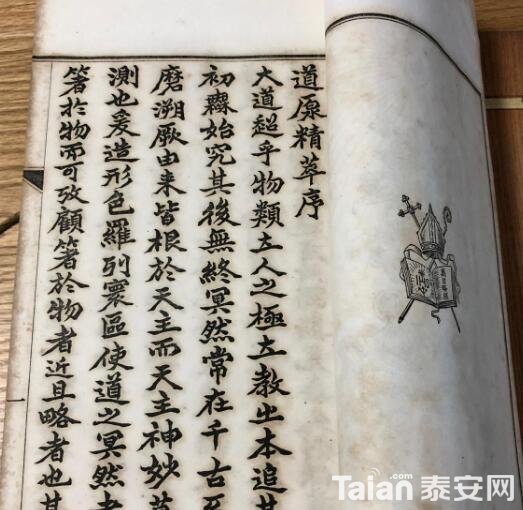 道原精萃序
大道超乎物類立人之極立教出本追其
初無始究其後無終冥然常在千古不
磨溯厥由來皆根於天主而天主神妙莫
測也爰造形色羅列寰區使道之冥然者
箸於物而可攷顧箸於物者近且略者也其
Taian 泰安网
.com